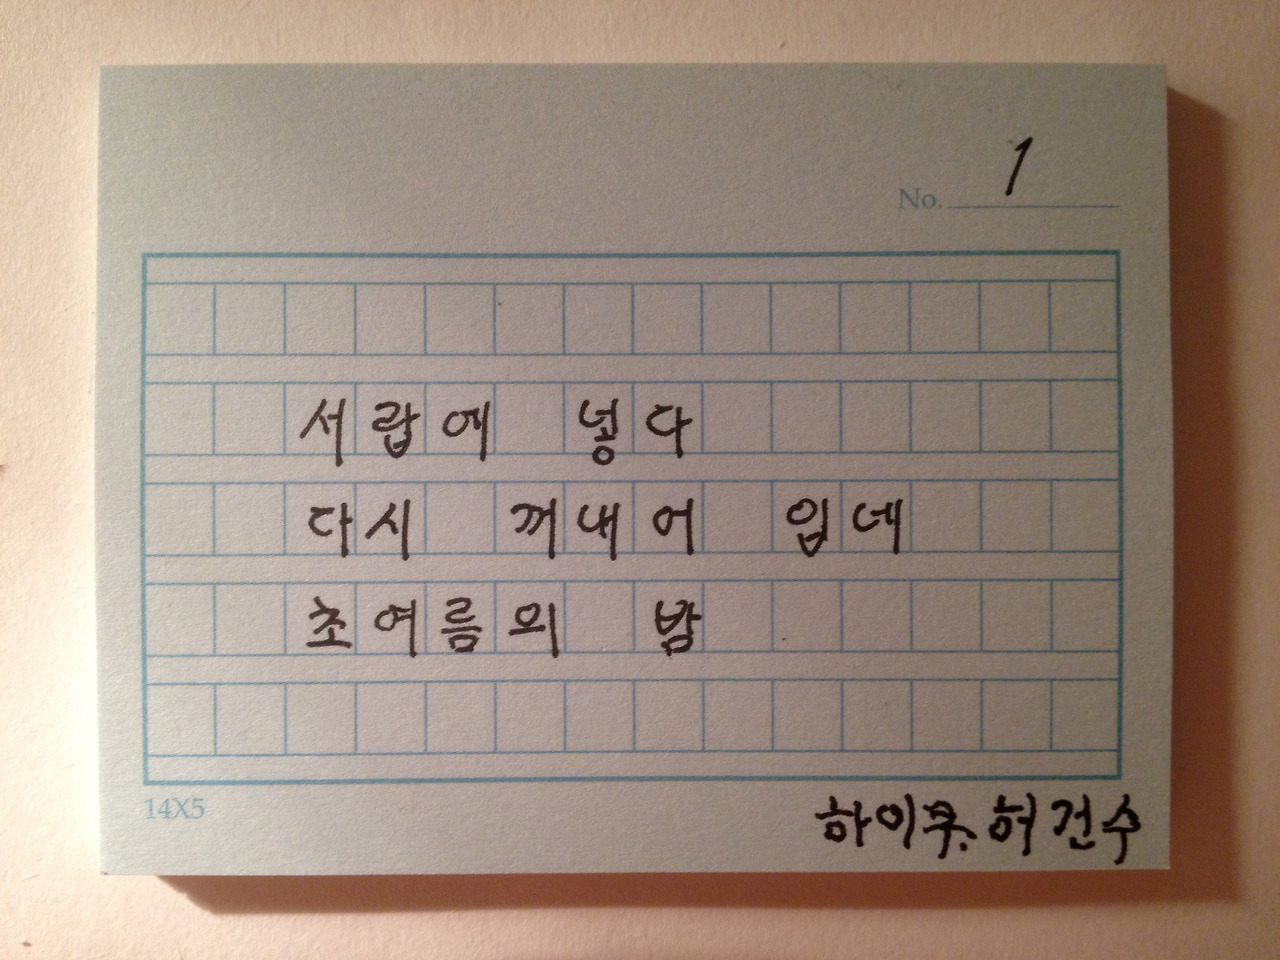 No. 1
서랍에 넣다
다시 꺼내어 입네
초여름의 밤
14X5
하이쿠. 허건수